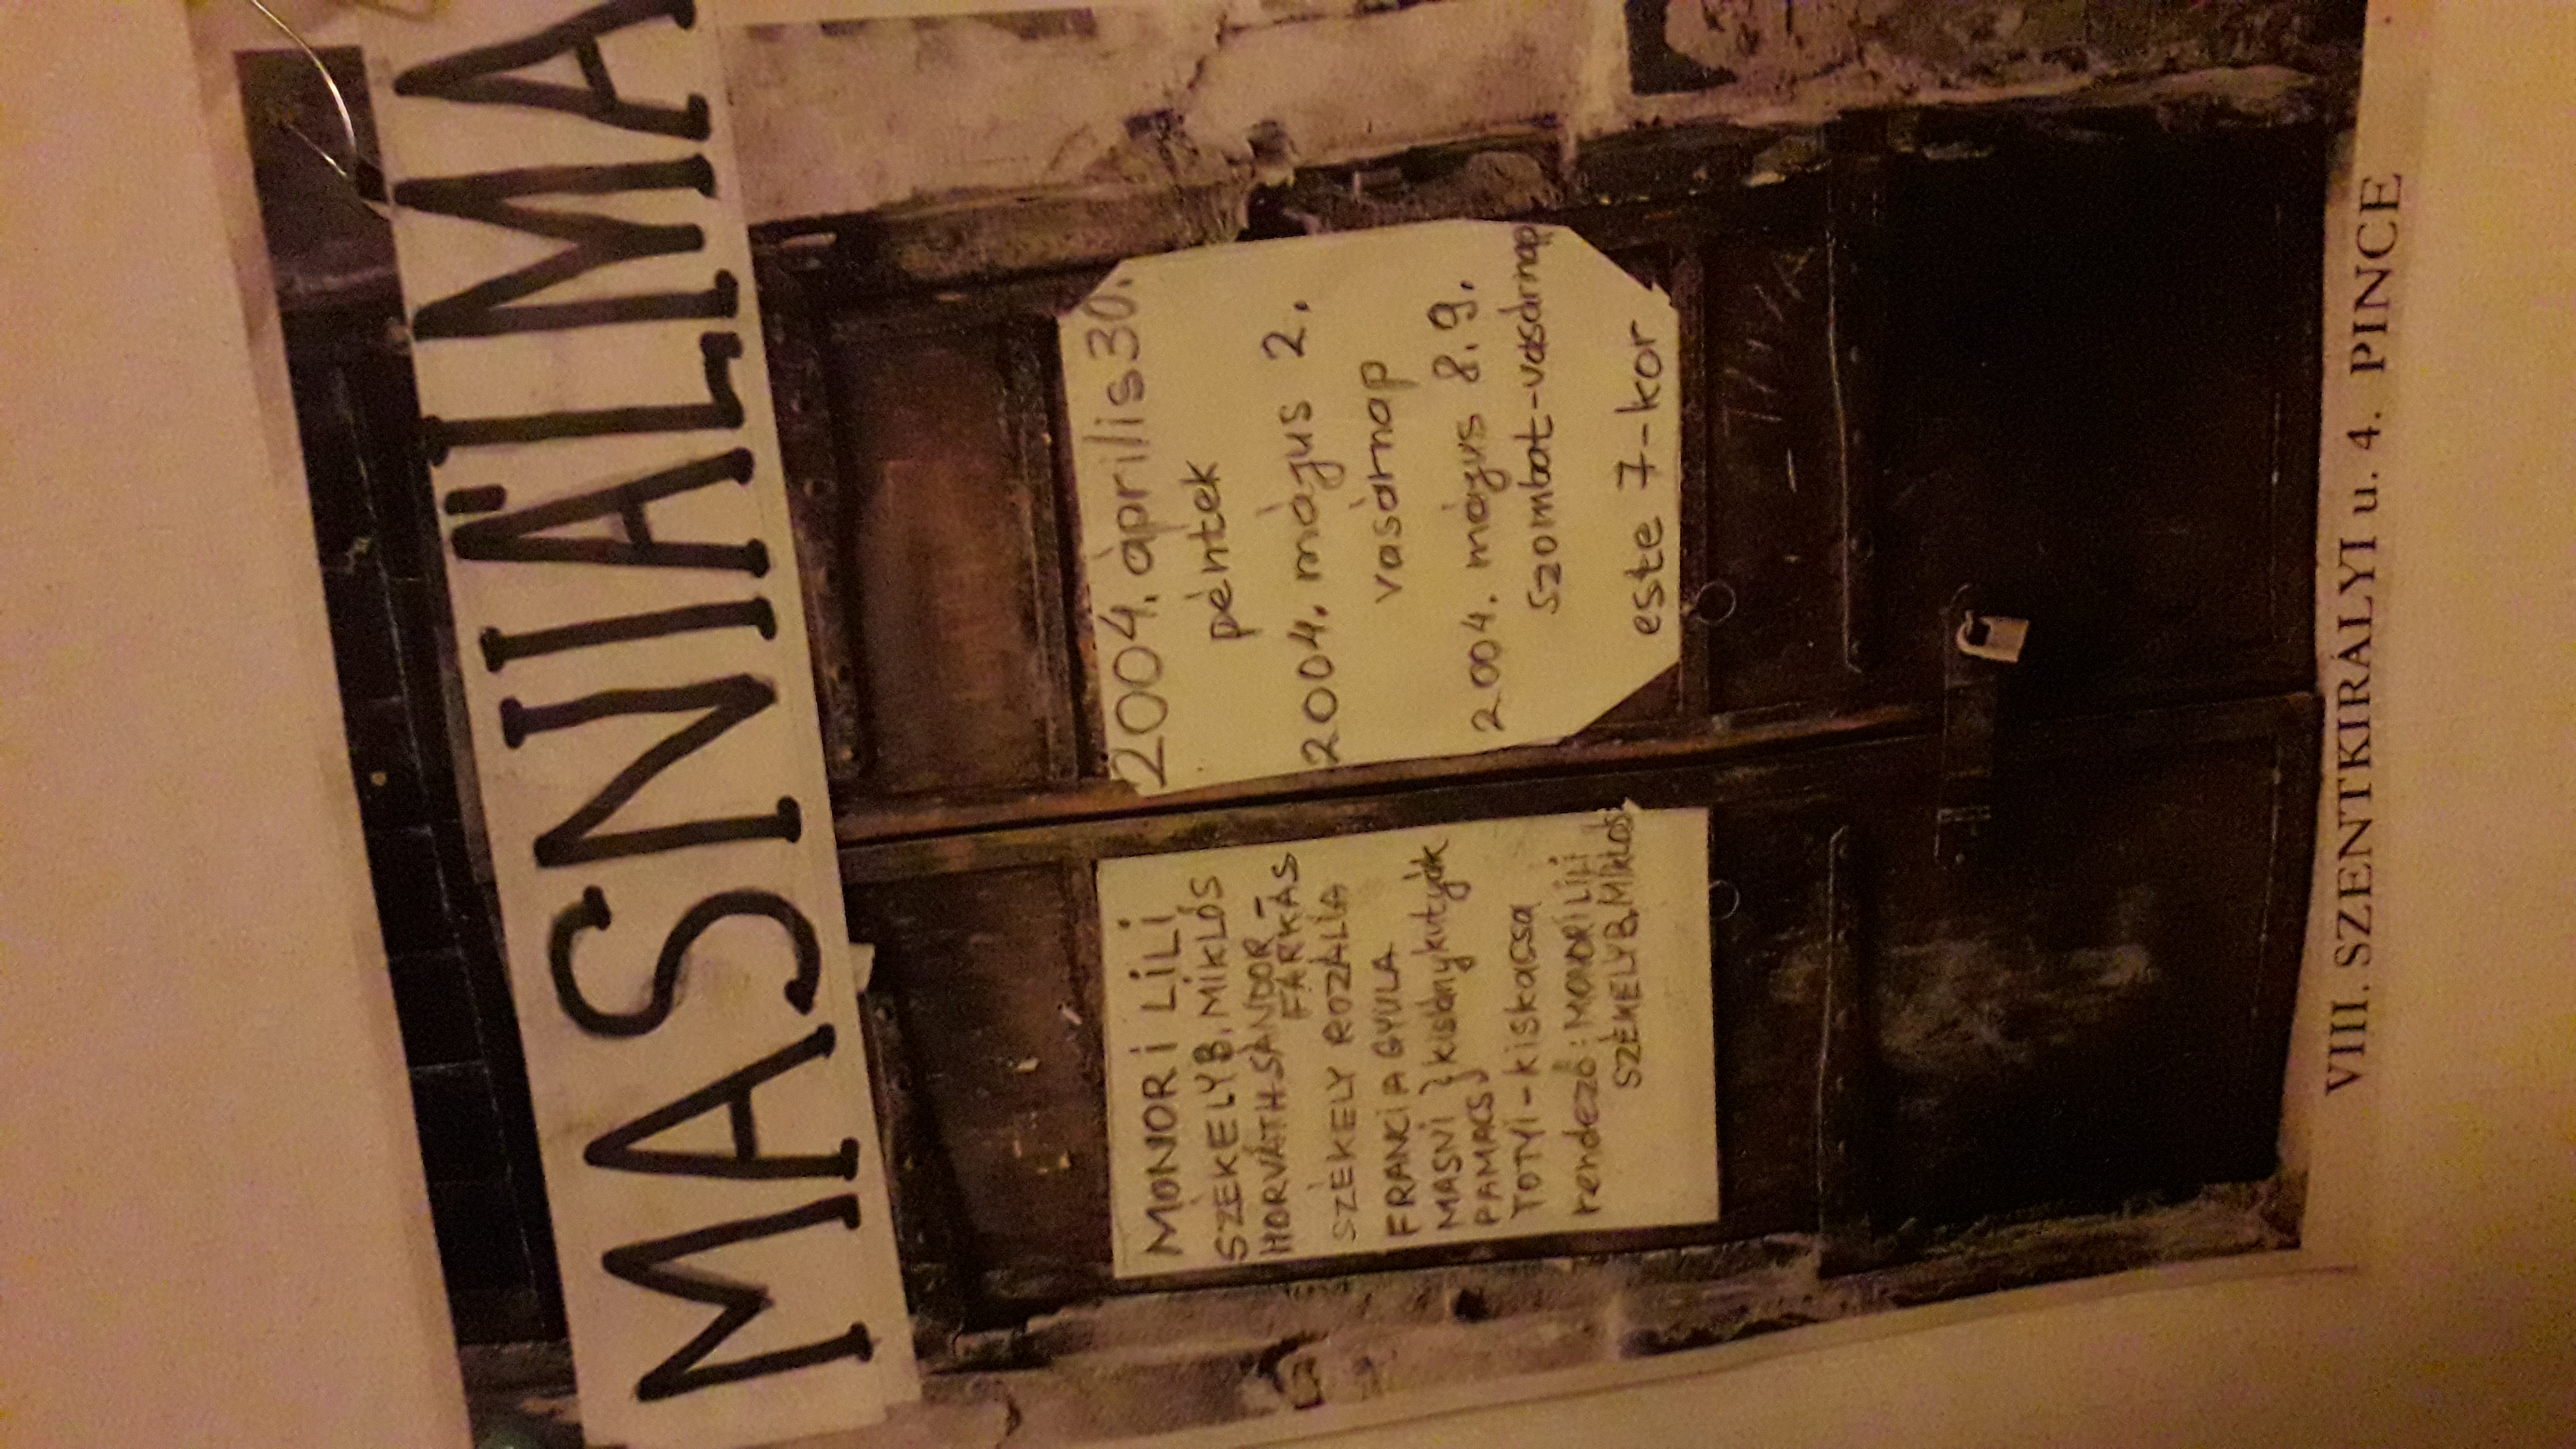 MASNIÁLMA
MONORI LILI
SZÉKELY B. MIKLÓS
HORVÁTH SÁNDOR-
FARKAS
SZÉKELY ROZÁLIA
FRANCIA GYULA
MASNI } kislánykutyák
PAMACS
TOTYI - kiskacsa
rendező: MONORI LILI
SZÉKELY B. MIKLÓS
2004. április 30.
péntek
2004. május 2.
vasárnap
2004. május 8. 9.
szombat-vasárnap
este 7-kor
VIII. SZENTKIRÁLYI u. 4. PINCE